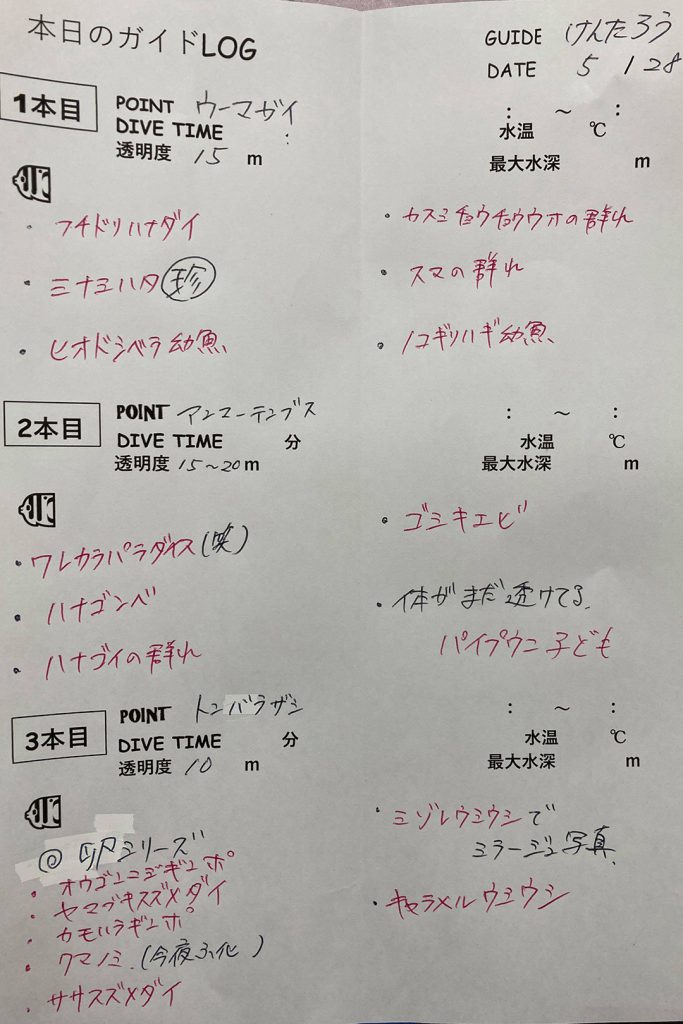 本日のガイドLOG
GUIDE けんたろう
DATE 5 / 28
1本目
POINT ウーマガイ
DIVE TIME :
透明度 15 m
: ～ :
水温 ℃
最大水深 m
・フチドリハナダイ
・ミナミハタ 珍
・ヒオドシベラ幼魚
・カスミチョウチョウウオの群れ
・スマの群れ
・ノコギリハギ幼魚
2本目
POINT アンマーテンブス
DIVE TIME 分
透明度 15～20 m
: ～ :
水温 ℃
最大水深 m
・ワレカラパラダイス(笑)
・ハナゴンベ
・ハナゴイの群れ
・ゴミキエビ
・体がまだ透けてる
パイプウニ子ども
3本目
POINT トンバラザシ
DIVE TIME 分
透明度 10 m
: ～ :
水温 ℃
最大水深 m
◎卵シリーズ
・オウゴンニジギンポ
・ヤマブキスズメダイ
・カモハラギンポ
・クマノミ (今夜ふ化)
・ササスズメダイ
・ミゾレウミウシで
ミラージュ写真
・キャラメルウミウシ